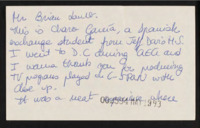 Mr Brian Lamb.
This is Chara García, a Spanish
exchange student from Jeff Davis H.S.
I went to D C during and
I wanna thank you for producing
TV programs played on C-SPAN with
close up.
It was a neat where